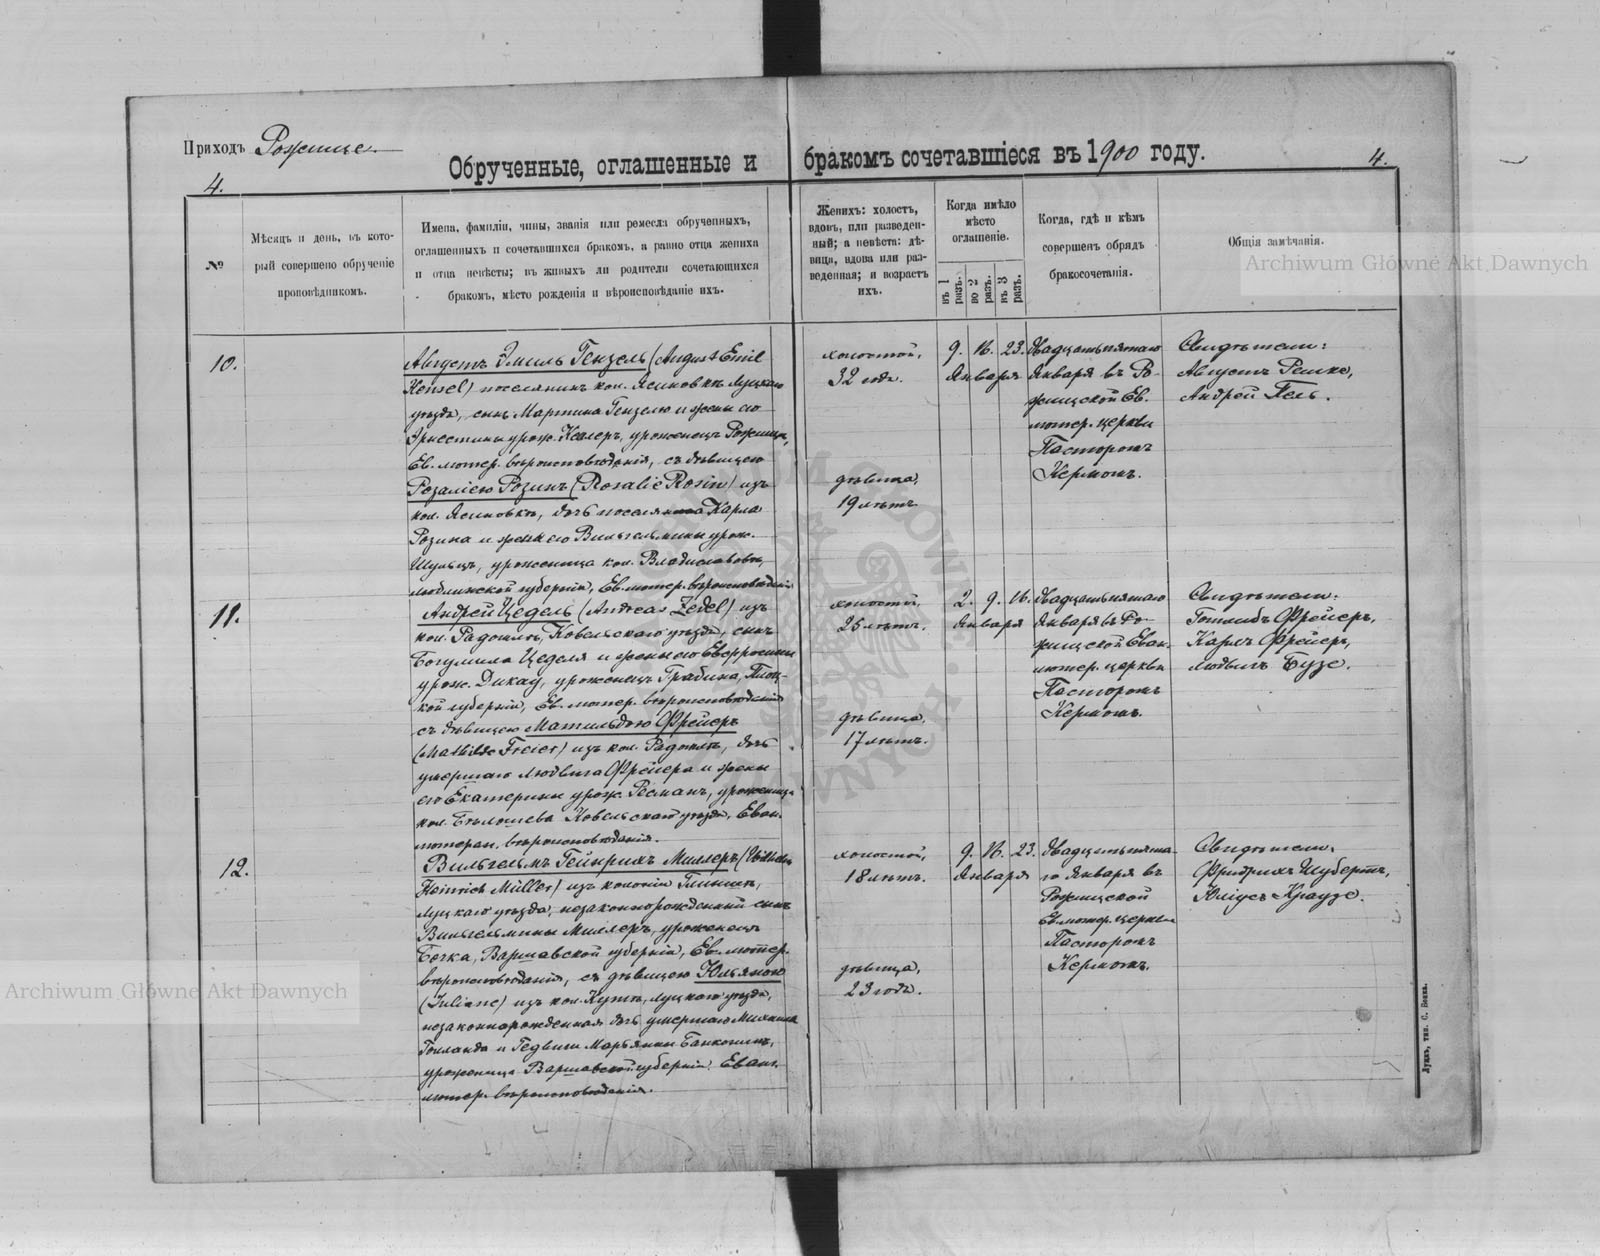 Приходъ Рожище
4.
Обрученные, оглашенные и бракомъ сочетавшіеся въ 1900 году.
4.
№
Мѣсяцъ и день, въ кото-
рый совершено обрученіе
проповѣдникомъ.
Имена, фамиліи, чины, званія или ремесла обрученныхъ,
оглашенныхъ и сочетавшихся бракомъ, а равно отца жениха
и отца невѣсты; въ живыхъ ли родители сочетающихся
бракомъ, мѣсто рожденія и вѣроисповѣданіе ихъ.
Женихъ: холостъ,
вдовъ, или разведен-
ный; а невѣста: дѣ-
вица, вдова или раз-
веденная; и возрастъ
ихъ.
Когда имѣло
мѣсто
оглашеніе.
въ 1 разъ.
во 2 разъ.
въ 3 разъ.
Когда, гдѣ и кѣмъ
совершенъ обрядъ
бракосочетанія.
Общія замѣчанія.
10.
Августъ Эмиль Гензель (August Emil
Hensel) поселянинъ кол. Ясиновкѣ Луцкаго
уѣзда, сынъ Мартина Гензеля и жены его
Эрнестины урож. Келлеръ, уроженецъ Рожища,
Ев. лютер. вѣроисповѣданія, съ дѣвицею
Розаліею Розинъ (Rosalie Rosin) изъ
кол. Ясиновкѣ, дочь поселянина Карла
Розина и жены его Вильгельмины урож.
Шульцъ, уроженица кол. Владиславовъ,
Люблинской губерніи, Ев. лютер. вѣроисповѣданія
холостой,
32 года.
дѣвица,
19 лѣтъ.
9. 16. 23.
Января
Двадцать пятаго
Января въ Ро-
жищской Ев.
лютер. церкви
Пасторомъ
Кермомъ.
Свидѣтели:
Августъ Решке,
Андрей Пель.
11.
Андрей Цедель (Andreas Zedel) изъ
кол. Радомлѣ, Ковельскаго уѣзда, сынъ
Богумила Цеделя и жены его Евфросины
урож. Дикау, уроженецъ Грабина, Плоц-
кой губерніи, Ев. лютер. вѣроисповѣданія
съ дѣвицею Матильдою Фрейеръ
(Mathilde Freier) изъ кол. Радомлѣ, дочь
умершаго Людвига Фрейера и жены
его Екатерины урож. Ресманъ, уроженица
кол. Бѣлошева Ковельскаго уѣзда, Еван.
лютеран. вѣроисповѣданія.
холостой,
25 лѣтъ.
дѣвица,
17 лѣтъ.
2. 9. 16.
Января
Двадцать пятаго
Января въ Ро-
жищской Еван.
лютер. церкви
Пасторомъ
Кермомъ.
Свидѣтели:
Готлибъ Фрейеръ,
Карлъ Фрейеръ,
Людвигъ Бузе.
12.
Вильгельмъ Гейнрихъ Миллеръ (Wilhelm
Heinrich Müller) изъ колоніи Глинищъ,
Луцкаго уѣзда, незаконнорожденный сынъ
Вильгельмины Миллеръ, уроженецъ
Бочка, Варшавской губерніи, Ев. лютер.
вѣроисповѣданія, съ дѣвицею Юльяною
(Juliane) изъ кол. Кутъ, Луцкаго уѣзда,
незаконнорожденная дочь умершаго Михаила
Голанда и Гедвиги Марьянны Банкогинъ,
уроженица Варшавской губерніи, Еванг.
лютер. вѣроисповѣданія.
холостой,
18 лѣтъ.
дѣвица,
23 года.
9. 16. 23.
Января
Двадцать пята-
го Января въ
Рожищской
Ев. лютер. церкви
Пасторомъ
Кермомъ.
Свидѣтели:
Фридрихъ Шубертъ,
Юліусъ Краузе.
Луцкъ, тип. С. Бонка.
Archiwum Główne Akt Dawnych
Archiwum Główne Akt Dawnych